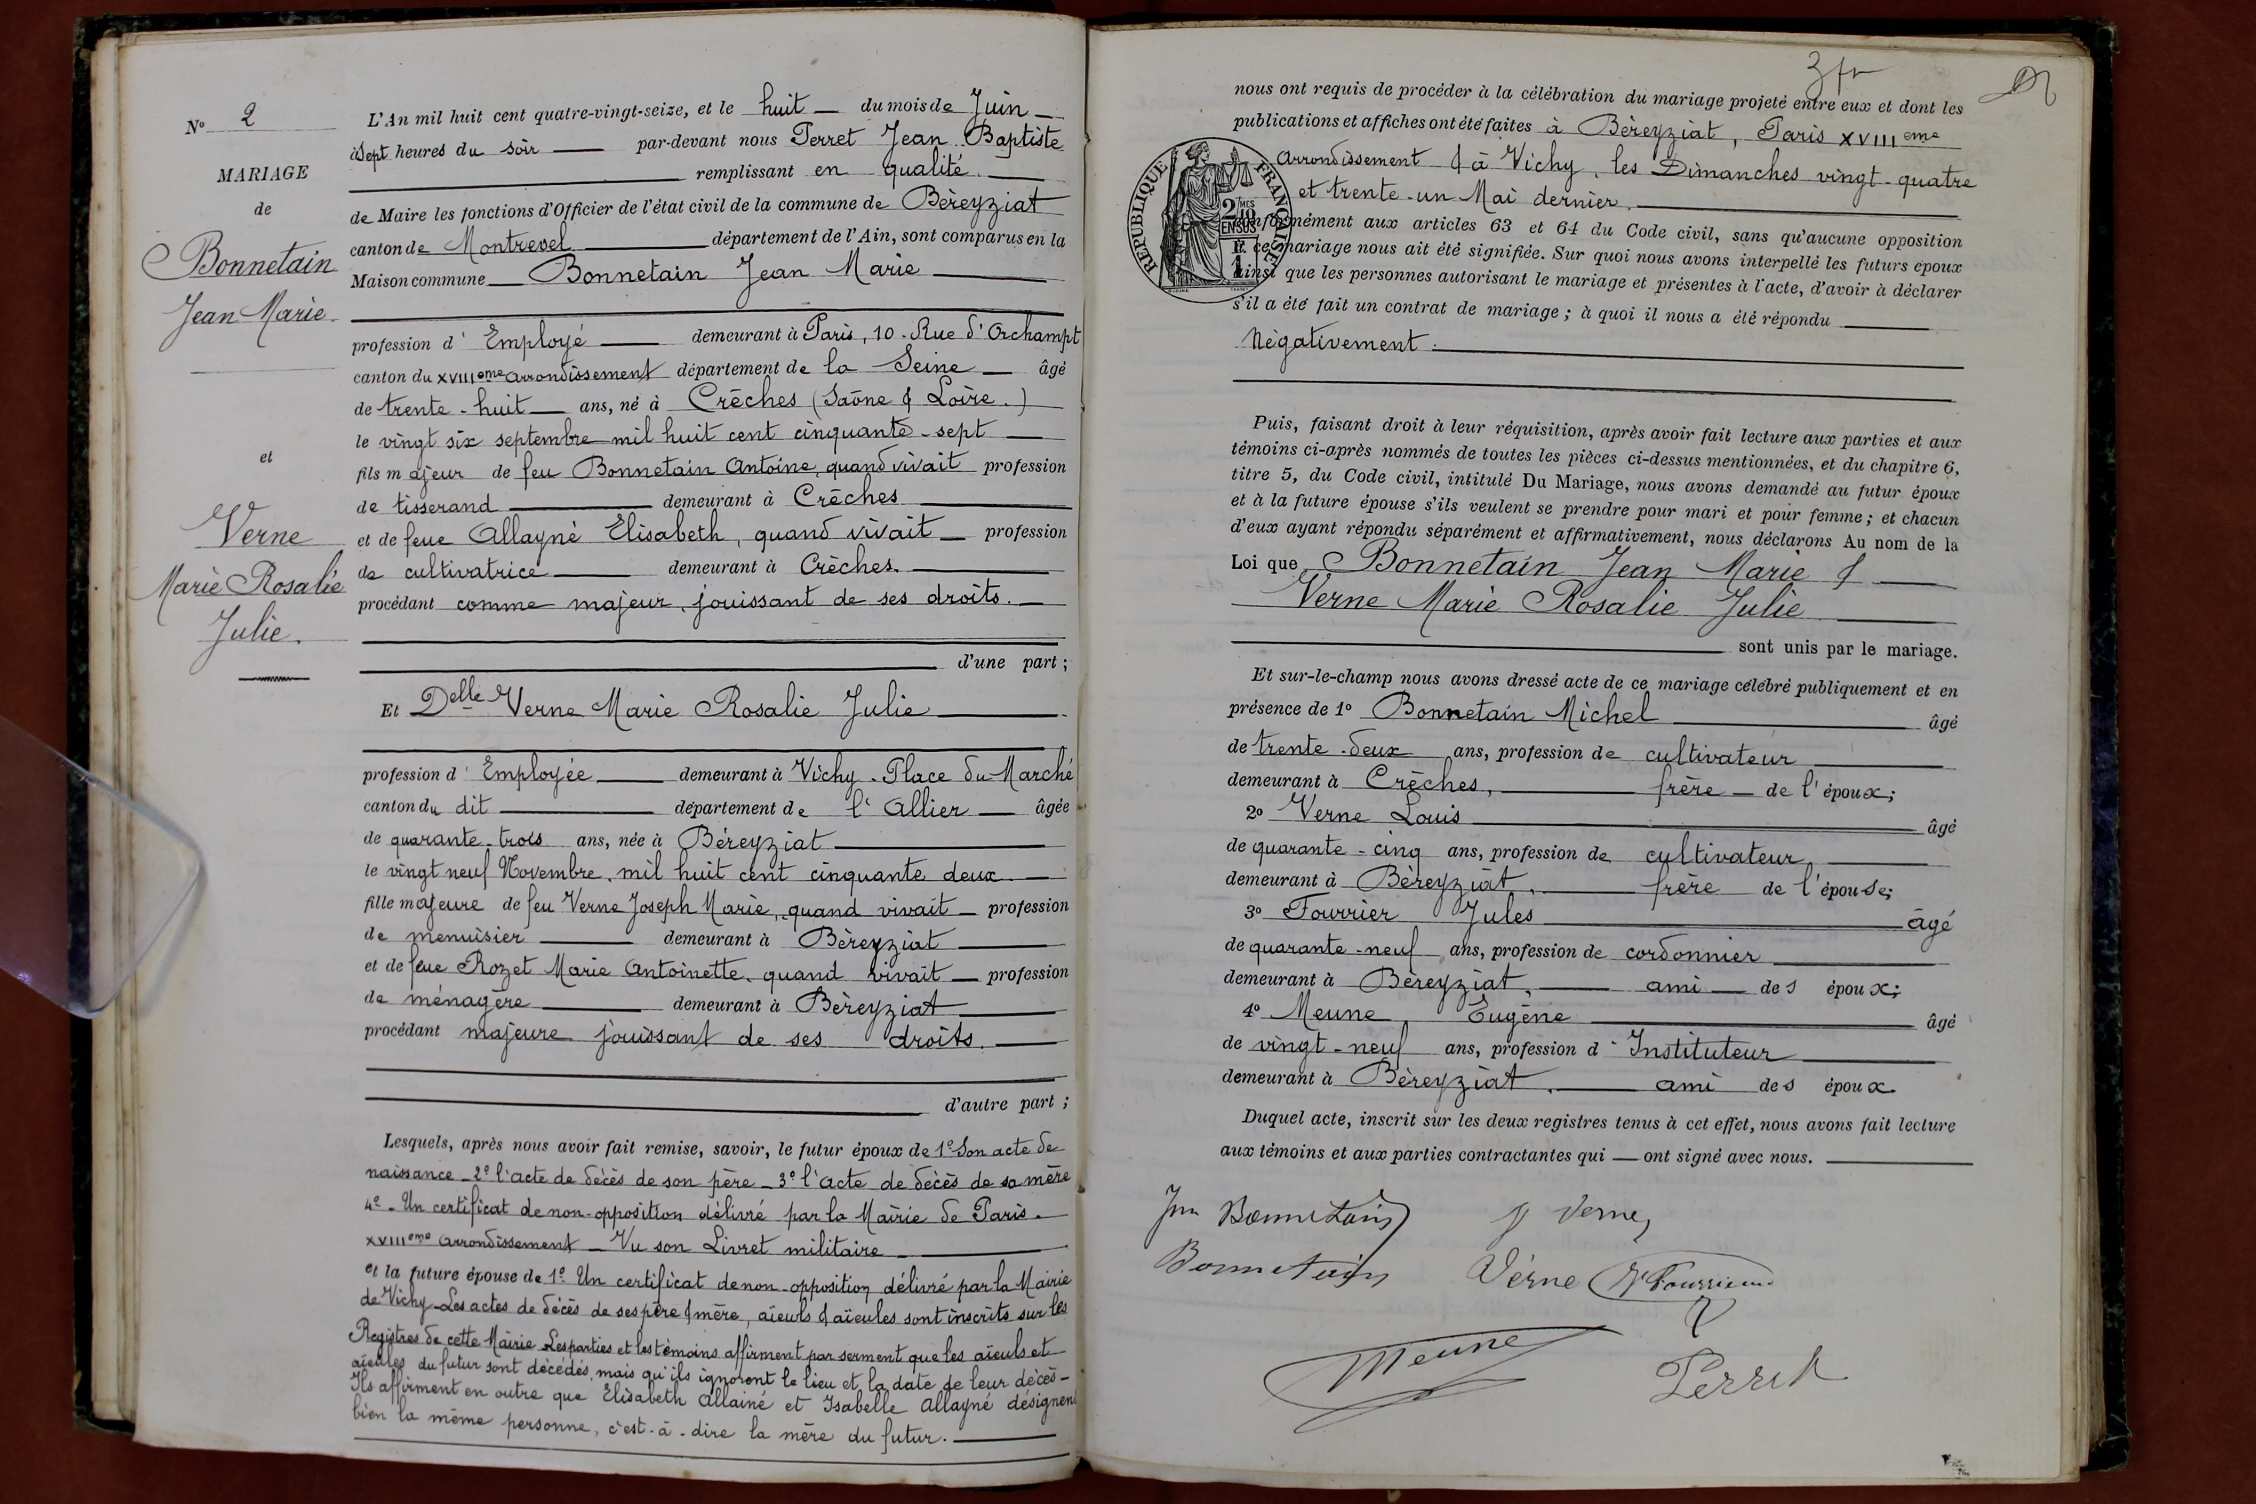 Nº 2
MARIAGE
de
Bonnetain
Jean Marie
et
Verne
Marie Rosalie
Julie.
L'An mil huit cent quatre-vingt-seize, et le huit du mois de Juin
à Sept heures du soir par-devant nous Perret Jean Baptiste
remplissant en qualité
de Maire les fonctions d'Officier de l'état civil de la commune de Béreyziat
canton de Montrevel département de l'Ain, sont comparus en la
Maison commune Bonnetain Jean Marie
profession d' Employé demeurant à Paris, 10 - Rue d'Orchampt
canton du XVIIIeme arrondissement département de la Seine âgé
de trente-huit ans, né à Crêches (Saône & Loire.)
le vingt six septembre mil huit cent cinquante-sept
fils majeur de feu Bonnetain Antoine, quand vivait profession
de tisserand demeurant à Crêches
et de feue Allayné Elisabeth, quand vivait profession
de cultivatrice demeurant à Crêches.
procédant comme majeur, jouissant de ses droits.
d'une part ;
Et Delle Verne Marie Rosalie Julie
profession d' Employée demeurant à Vichy - Place du Marché
canton du dit département de l'Allier âgée
de quarante-trois ans, née à Béreyziat
le vingt neuf Novembre, mil huit cent cinquante deux
fille majeure de feu Verne Joseph Marie, quand vivait profession
de menuisier demeurant à Béreyziat
et de feue Rozet Marie Antoinette, quand vivait profession
de ménagère demeurant à Béreyziat
procédant majeure jouissant de ses droits.
d'autre part ;
Lesquels, après nous avoir fait remise, savoir, le futur époux de 1º Son acte de
naissance - 2º l'acte de décès de son père - 3º l'acte de décès de sa mère
4º - Un certificat de non-opposition délivré par la Mairie de Paris -
XVIIIeme arrondissement - Vu son Livret militaire -
et la future épouse de 1º Un certificat de non-opposition délivré par la Mairie
de Vichy - Les actes de décès de ses père & mère, aïeuls & aïeules sont inscrits sur les
Registres de cette Mairie Les parties et les témoins affirment par serment que les aïeuls et
aïeules du futur sont décédés, mais qu'ils ignorent le lieu et la date de leur décès -
Ils affirment en outre que Elisabeth Allainé et Isabelle Allayné désignent
bien la même personne, c'est-à-dire la mère du futur.
3 fr
nous ont requis de procéder à la célébration du mariage projeté entre eux et dont les
publications et affiches ont été faites à Béreyziat, Paris XVIIIeme
Arrondissement & à Vichy, les Dimanches vingt-quatre
et trente-un Mai dernier.
RÉPUBLIQUE FRANÇAISE
2 MES 10
EN SUS
conformément aux articles 63 et 64 du Code civil, sans qu'aucune opposition
à ce mariage nous ait été signifiée. Sur quoi nous avons interpellé les futurs époux
ainsi que les personnes autorisant le mariage et présentes à l'acte, d'avoir à déclarer
s'il a été fait un contrat de mariage ; à quoi il nous a été répondu
Négativement.
Puis, faisant droit à leur réquisition, après avoir fait lecture aux parties et aux
témoins ci-après nommés de toutes les pièces ci-dessus mentionnées, et du chapitre 6,
titre 5, du Code civil, intitulé Du Mariage, nous avons demandé au futur époux
et à la future épouse s'ils veulent se prendre pour mari et pour femme ; et chacun
d'eux ayant répondu séparément et affirmativement, nous déclarons Au nom de la
Loi que Bonnetain Jean Marie &
Verne Marie Rosalie Julie
sont unis par le mariage.
Et sur-le-champ nous avons dressé acte de ce mariage célébré publiquement et en
présence de 1º Bonnetain Michel âgé
de trente-deux ans, profession de cultivateur
demeurant à Crêches, frère de l'époux ;
2º Verne Louis âgé
de quarante-cinq ans, profession de cultivateur
demeurant à Béreyziat, frère de l'épouse ;
3º Fourrier Jules âgé
de quarante-neuf ans, profession de cordonnier
demeurant à Béreyziat, ami des époux ;
4º Meune Eugène âgé
de vingt-neuf ans, profession d' Instituteur
demeurant à Béreyziat, ami des époux
Duquel acte, inscrit sur les deux registres tenus à cet effet, nous avons fait lecture
aux témoins et aux parties contractantes qui ont signé avec nous.
Jm Bonnetain J Verne
Bonnetain Verne J Fourrier
Meune Perret